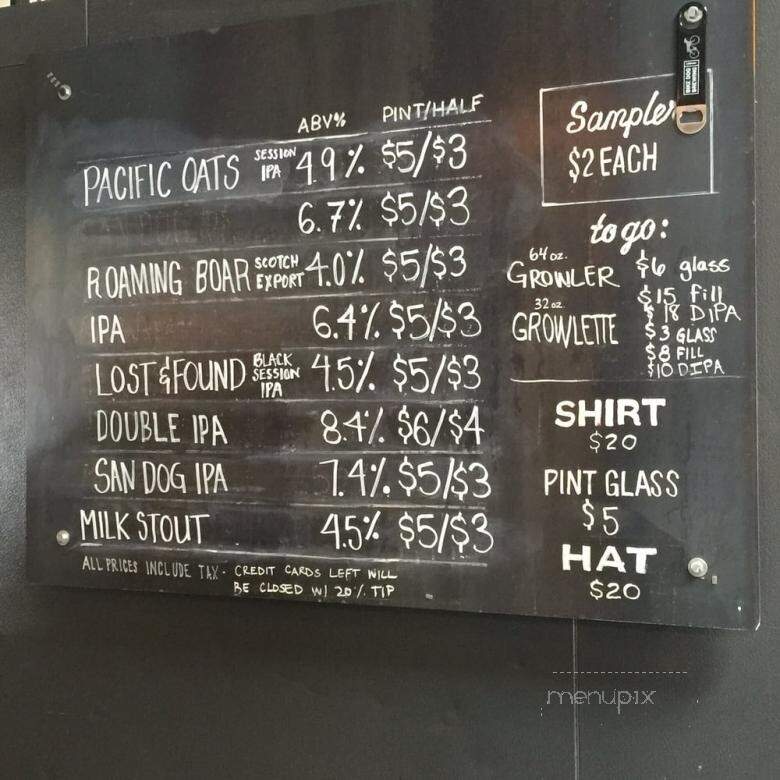 ABV% PINT/HALF
PACIFIC OATS SESSION IPA 4.9% $5/$3
6.7% $5/$3
ROAMING BOAR SCOTCH EXPORT 4.0% $5/$3
IPA 6.4% $5/$3
LOST & FOUND BLACK SESSION IPA 4.5% $5/$3
DOUBLE IPA 8.4% $6/$4
SAN DOG IPA 7.4% $5/$3
MILK STOUT 4.5% $5/$3
ALL PRICES INCLUDE TAX - CREDIT CARDS LEFT WILL
BE CLOSED W/ 20% TIP
Sampler
$2 EACH
to go:
64 oz.
GROWLER $6 glass
$15 fill
$18 DIPA
32 oz.
GROWLETTE $3 GLASS
$8 FILL
$10 DIPA
SHIRT
$20
PINT GLASS
$5
HAT
$20
menupix